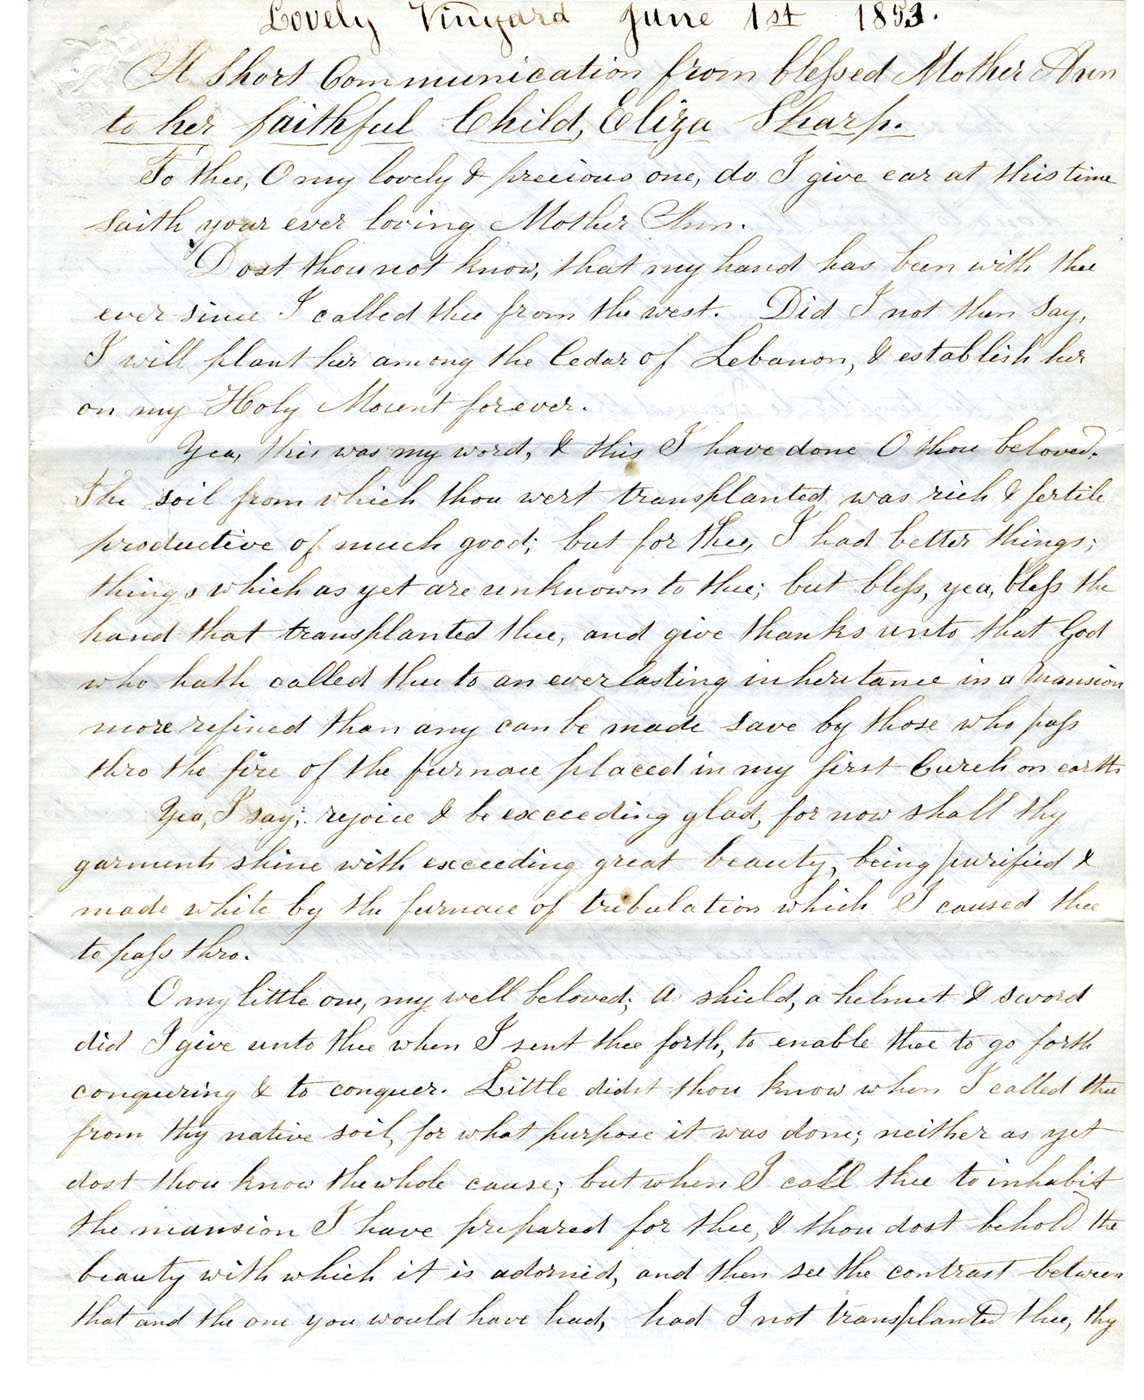 Lovely Vinyard June 1st 1853.
A Short Communication from blessed Mother Ann
to her faithful Child, Eliza Sharp.
To thee, O my lovely & precious one, do I give ear at this time
saith your ever loving Mother Ann.
Dost thou not know, that my hand has been with thee
ever since I called thee from the west. Did I not then say,
I will plant her among the Cedar of Lebanon, & establish her
on my Holy Mount forever.
Yea, this was my word, & this I have done O thou beloved.
The soil from which thou wert transplanted was rich & fertile
productive of much good; but for thee, I had better things;
things which as yet are unknown to thee; but bless, yea, bless the
hand that transplanted thee, and give thanks unto that God
who hath called thee to an everlasting inheritance in a Mansion
more refined than any can be made save by those who pass
thro the fire of the furnace placed in my first Curch on earth
Yea, I say; rejoice & be exceeding glad, for now shall thy
garments shine with exceeding great beauty, being purified &
made white by the furnace of tribulation which I caused thee
to pass thro.
O my little one, my well beloved; A shield, a helmet & sword
did I give unto thee when I sent thee forth, to enable thee to go forth
conquering & to conquer. Little didst thou know when I called thee
from thy native soil, for what purpose it was done; neither as yet
dost thou know the whole cause; but when I call thee to inhabit
the mansion I have prepared for thee, & thou dost behold the
beauty with which it is adorned, and then see the contrast between
that and the one you would have had, had I not transplanted thee, thy